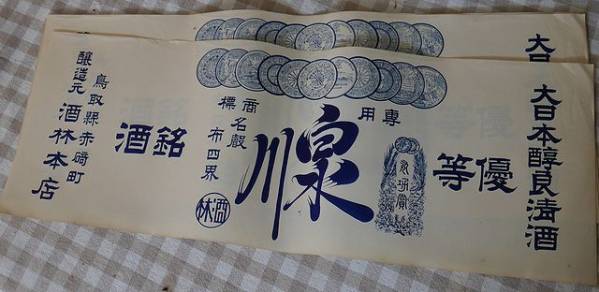 大日本醇良清酒
優等
専用
泉川
商標
名声殷布四界
酒林
銘酒
鳥取縣赤碕町
醸造元 酒林本店
大日